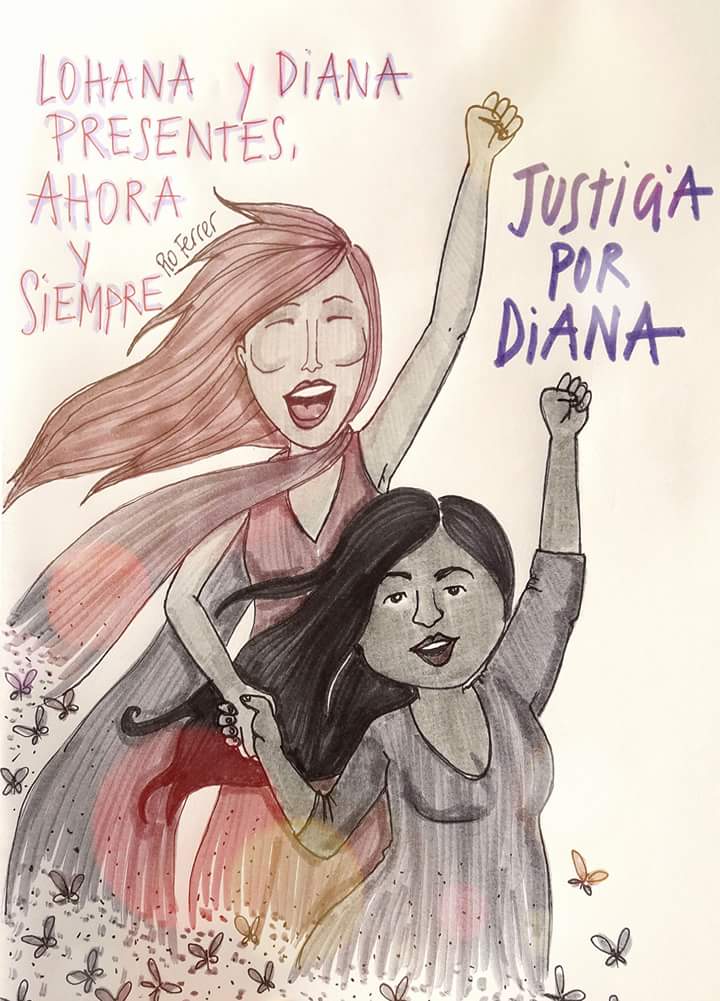 LOHANA y DiANA
PRESENTES,
AHORA
y
SiEMPRE
Ro Ferrer
JUSTiCiA
POR
DiANA